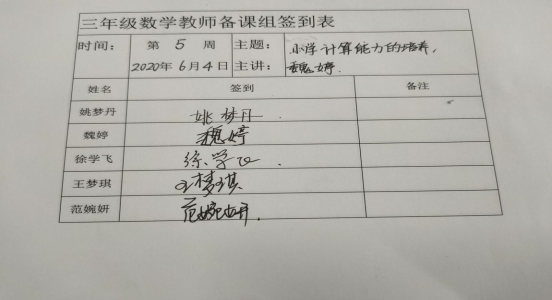 三年级数学教师备课组签到表
时间: 第 5 周 主题: 小学计算能力的培养,
2020年6月4日 主讲: 魏婷.
姓名 签到 备注
姚梦丹 姚梦丹
魏婷 魏婷
徐学飞 徐学飞
王梦琪 王梦琪
范婉妍 范婉妍